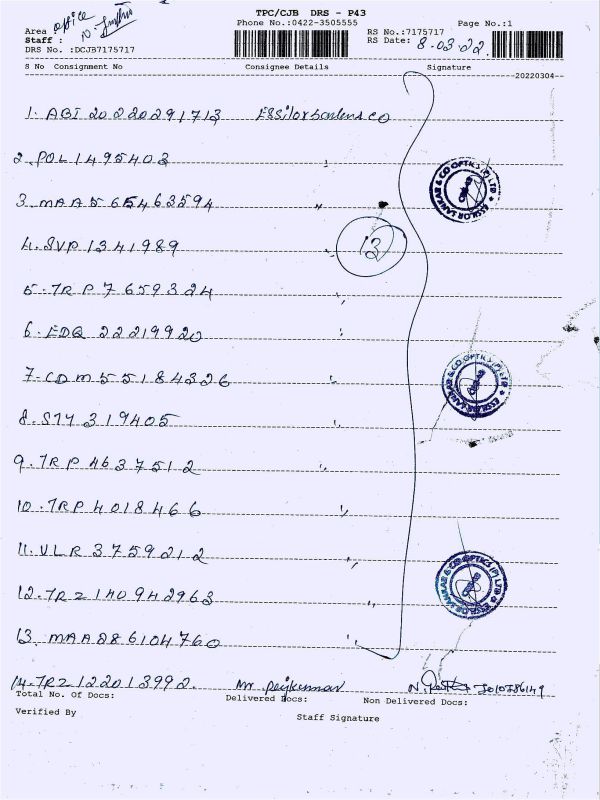 TPC/CJB DRS - P43
Phone No.:0422-3505555
Page No.:1
Area office
Staff :
DRS No. :DCJB7175717
RS No.:7175717
RS Date: 8.03.22.
S No Consignment No Consignee Details Signature
20220304
1. ABI 20220291713
2. POL 1495403 "
3. MAA 565463594 "
4. SVP 1341989 "
13
5. TRP 7659324 "
6. EDQ 22219920 "
7. CDM 55184326 "
8. STY 319405 "
9. TRP 4637512 "
10. TRP 4018466 "
11. VLR 3759212 "
12. TRZ 140942963 "
13. MAA 886104760 "
14. TRZ 122013992. Mr
Total No. Of Docs: Delivered Docs: Non Delivered Docs:
Verified By Staff Signature
ESSILOR LANKAR & CO OPTICS (P) LTD
ESSILOR LANKAR & CO OPTICS (P) LTD
ESSILOR LANKAR & CO OPTICS (P) LTD